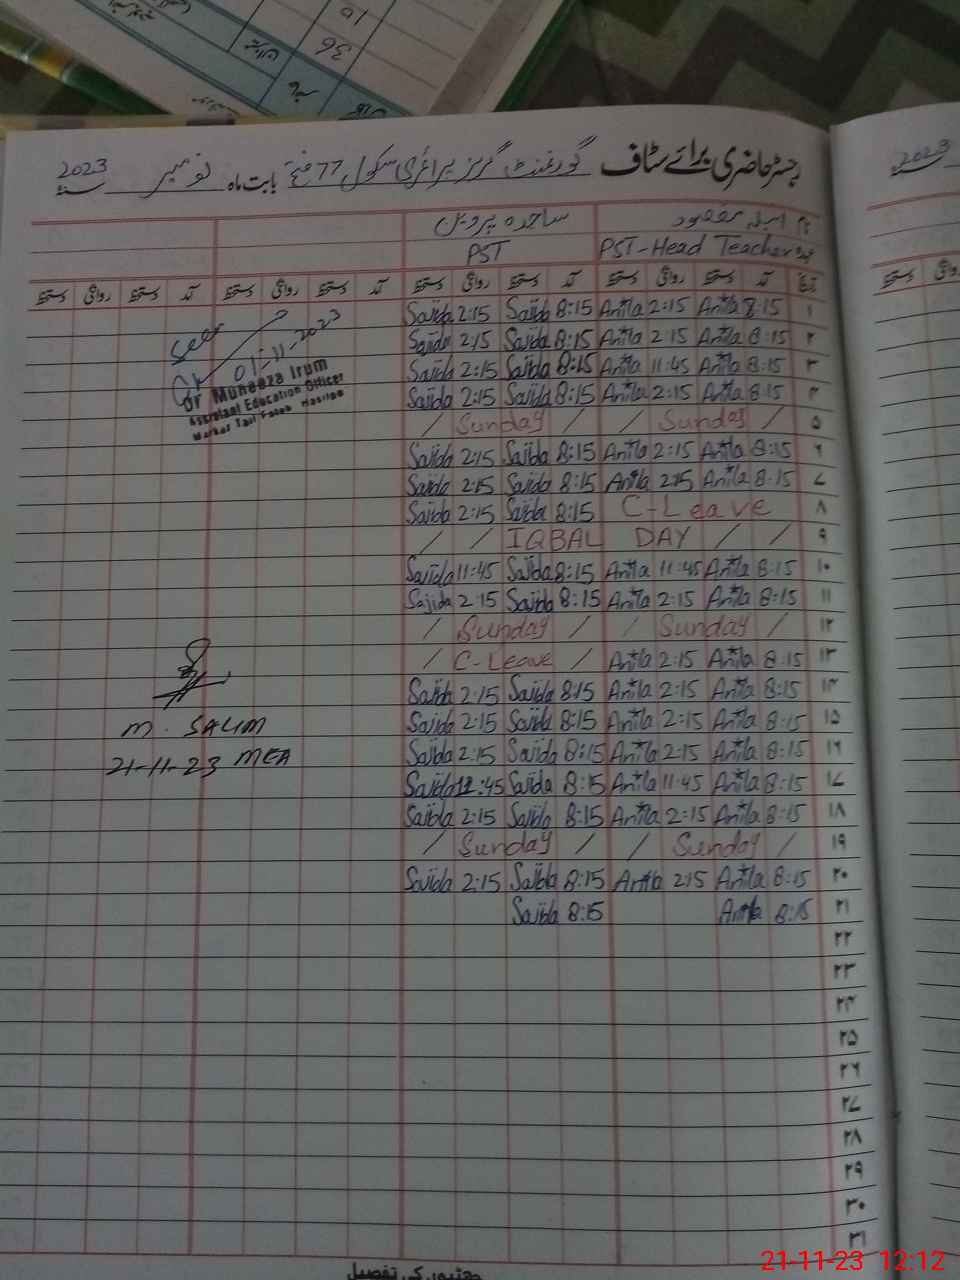 36
رجسٹر حاضری برائے سٹاف گورنمنٹ گرلز پرائمری سکول 77 فتح بابت ماہ نومبر سنہ 2023
2023
نام انیلہ مقصود ساجدہ پروین
عہدہ PST-Head Teacher PST
تاریخ آمد دستخط روانگی دستخط آمد دستخط روانگی دستخط آمد دستخط روانگی دستخط آمد دستخط روانگی دستخط
۱ 8:15 Anila 2:15 Anila 8:15 Sajida 2:15 Sajida
۲ 8:15 Anila 2:15 Anila 8:15 Sajida 2:15 Sajida
۳ 8:15 Anila 11:45 Anila 8:15 Sajida 2:15 Sajida
۴ 8:15 Anila 2:15 Anila 8:15 Sajida 2:15 Sajida
۵ / Sunday / / Sunday /
۶ 8:15 Anila 2:15 Anila 8:15 Sajida 2:15 Sajida
۷ 8:15 Anila 2:15 Anila 8:15 Sajida 2:15 Sajida
۸ C-Leave 8:15 Sajida 2:15 Sajida
۹ / / IQBAL DAY / /
۱۰ 8:15 Anila 11:45 Anila 8:15 Sajida 11:45 Sajida
۱۱ 8:15 Anila 2:15 Anila 8:15 Sajida 2:15 Sajida
۱۲ / Sunday / / Sunday /
۱۳ 8:15 Anila 2:15 Anila / C-Leave /
۱۴ 8:15 Anila 2:15 Anila 8:15 Sajida 2:15 Sajida
۱۵ 8:15 Anila 2:15 Anila 8:15 Sajida 2:15 Sajida
۱۶ 8:15 Anila 2:15 Anila 8:15 Sajida 2:15 Sajida
۱۷ 8:15 Anila 11:45 Anila 8:15 Sajida 11:45 Sajida
۱۸ 8:15 Anila 2:15 Anila 8:15 Sajida 2:15 Sajida
۱۹ / Sunday / / Sunday /
۲۰ 8:15 Anila 2:15 Anila 8:15 Sajida 2:15 Sajida
۲۱ 8:15 Anila 8:15 Sajida
۲۲
۲۳
۲۴
۲۵
۲۶
۲۷
۲۸
۲۹
۳۰
۳۱
Seen
01-11-2023
Dr Muneeza Irum
Assistant Education Officer
Markaz Tail
M. SALIM
21-11-23 MEA
چھٹیوں کی تفصیل
21-11-23 12:12